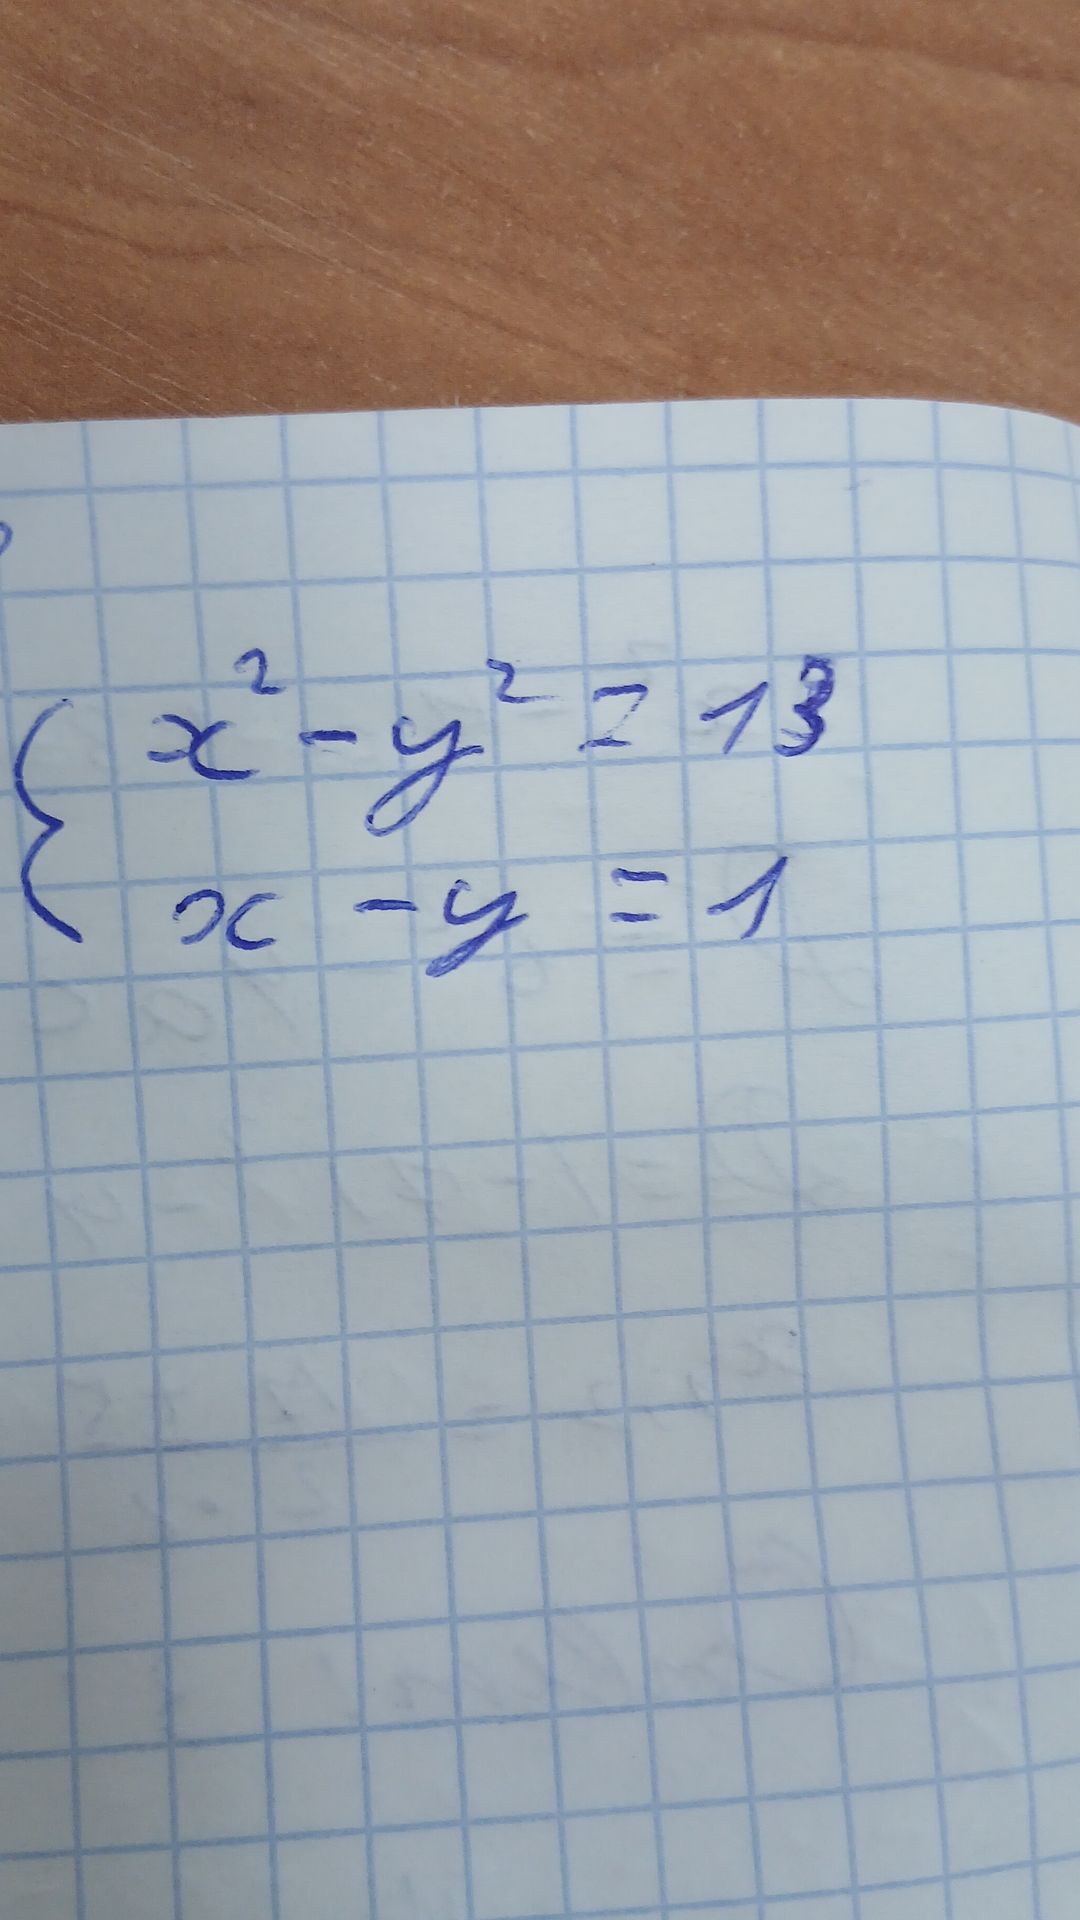 x² - y² = 13
x - y = 1